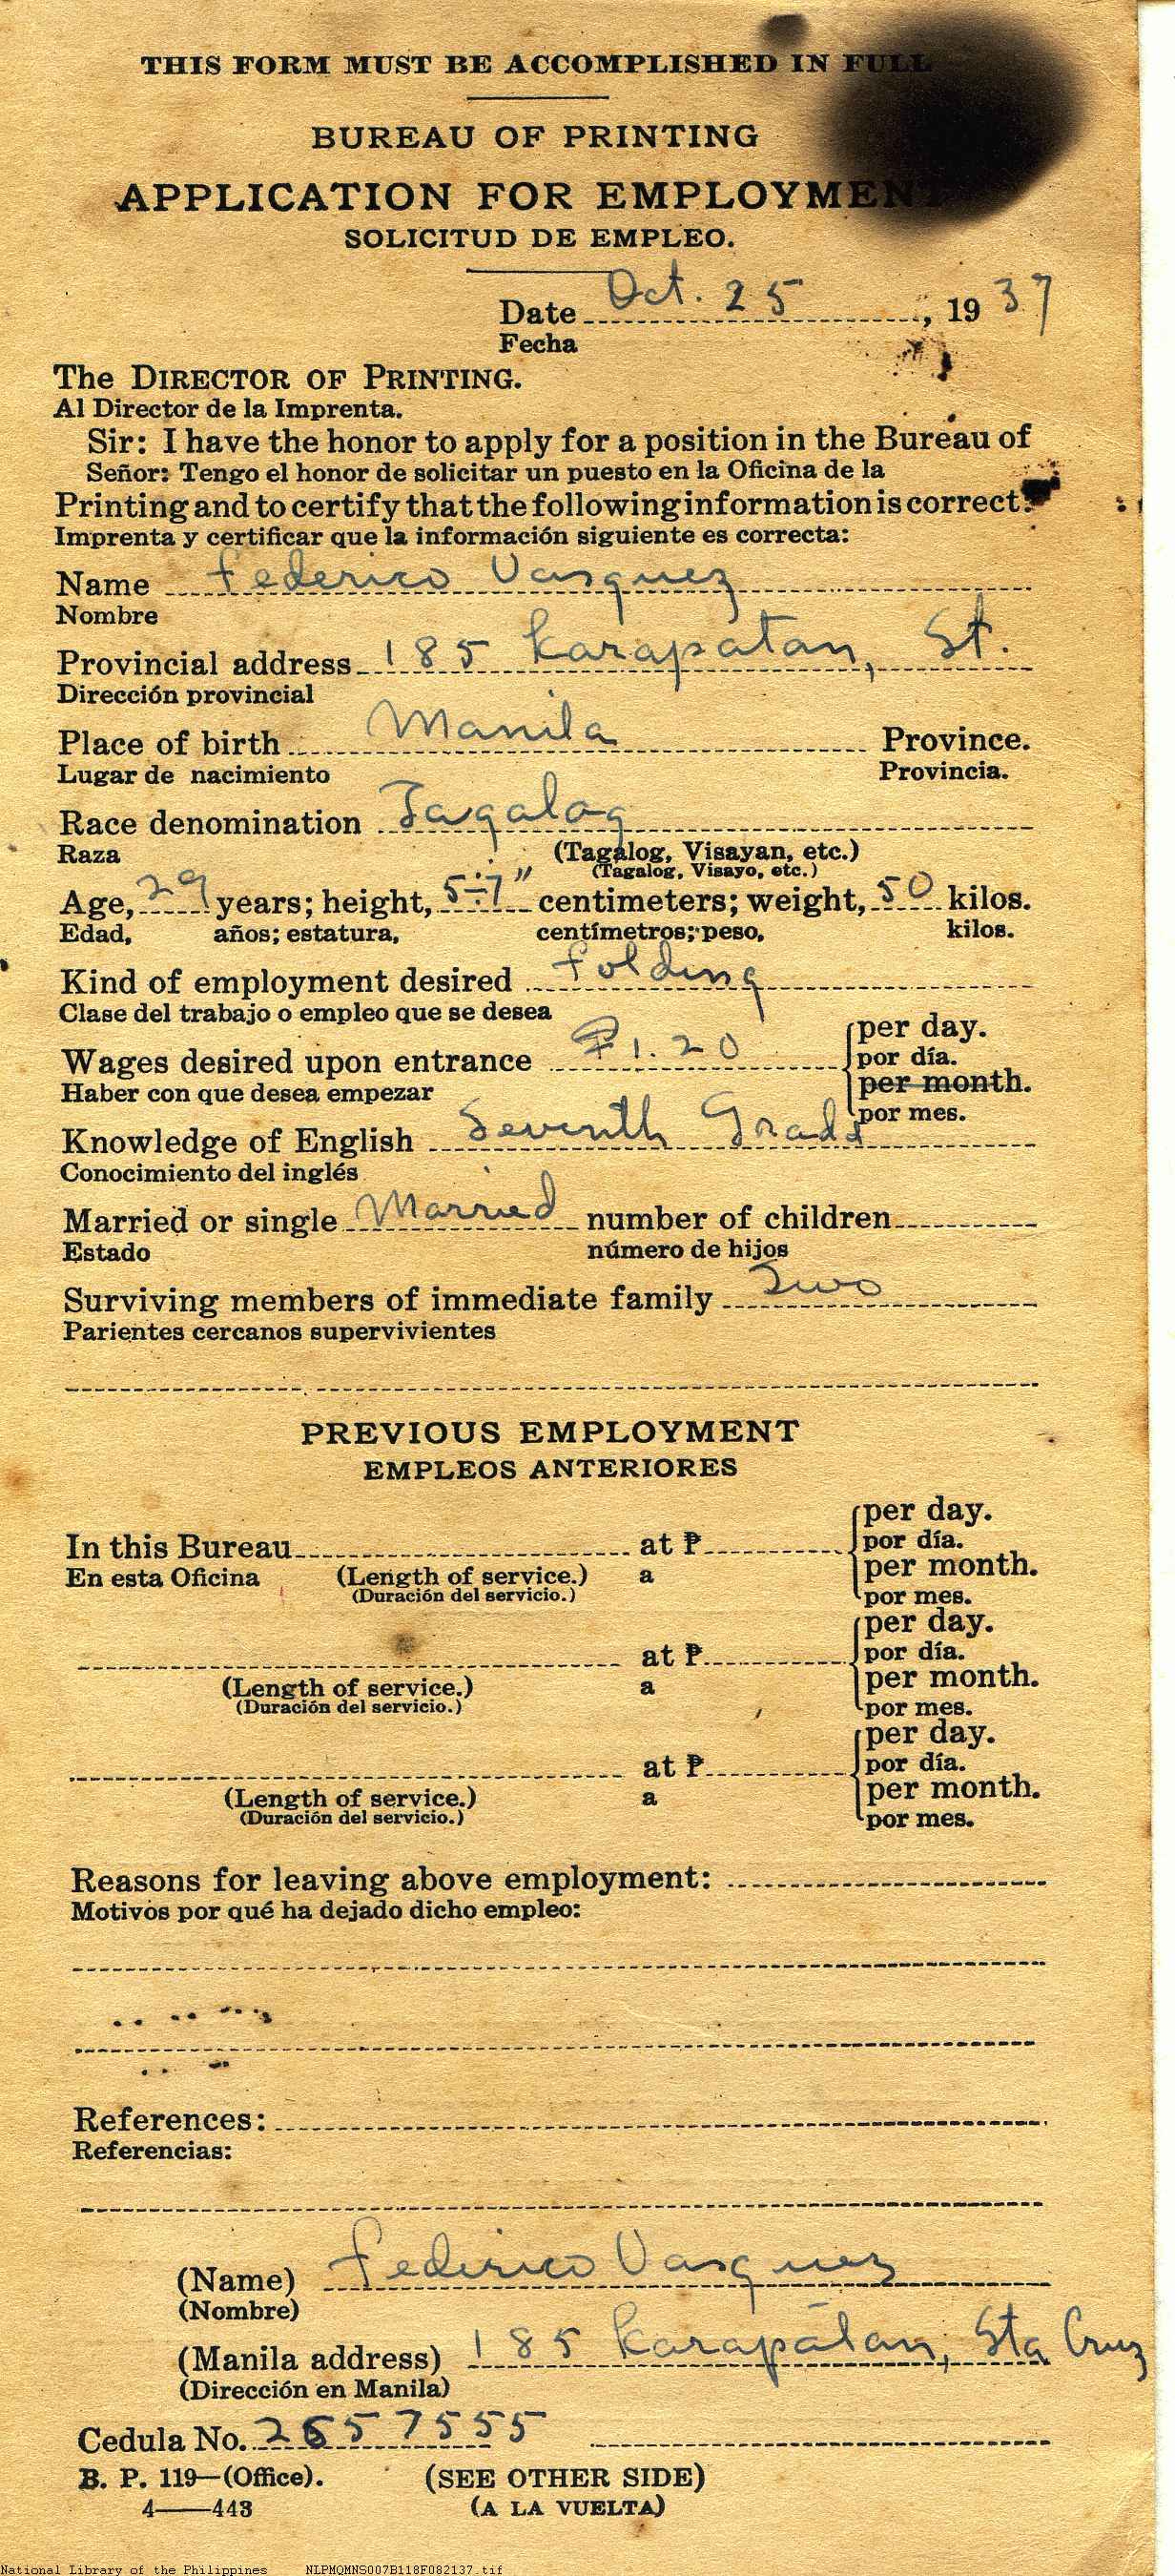 THIS FORM MUST BE ACCOMPLISHED IN FULL
BUREAU OF PRINTING
APPLICATION FOR EMPLOYMENT
SOLICITUD DE EMPLEO.
Date Oct. 25, 1937
Fecha
The DIRECTOR OF PRINTING.
Al Director de la Imprenta.
Sir: I have the honor to apply for a position in the Bureau of
Señor: Tengo el honor de solicitar un puesto en la Oficina de la
Printing and to certify that the following information is correct:
Imprenta y certificar que la información siguiente es correcta:
Name Federico Vasquez
Nombre
Provincial address 185 Karapatan, St.
Dirección provincial
Place of birth Manila Province.
Lugar de nacimiento Provincia.
Race denomination Tagalog
Raza (Tagalog, Visayan, etc.)
(Tagalog, Visayo, etc.)
Age, 29 years; height, 5-7" centimeters; weight, 50 kilos.
Edad, años; estatura, centímetros; peso, kilos.
Kind of employment desired folding
Clase del trabajo o empleo que se desea
per day.
Wages desired upon entrance ₱1.20 por día.
Haber con que desea empezar per month.
por mes.
Knowledge of English Seventh Grade
Conocimiento del inglés
Married or single Married number of children
Estado número de hijos
Surviving members of immediate family Two
Parientes cercanos supervivientes
PREVIOUS EMPLOYMENT
EMPLEOS ANTERIORES
per day.
In this Bureau at ₱ por día.
En esta Oficina (Length of service.) a per month.
(Duración del servicio.) por mes.
per day.
at ₱ por día.
(Length of service.) a per month.
(Duración del servicio.) por mes.
per day.
at ₱ por día.
(Length of service.) a per month.
(Duración del servicio.) por mes.
Reasons for leaving above employment:
Motivos por qué ha dejado dicho empleo:
References:
Referencias:
(Name) Federico Vasquez
(Nombre)
(Manila address) 185 Karapatan, Sta Cruz
(Dirección en Manila)
Cedula No. 2657555
B. P. 119—(Office). (SEE OTHER SIDE)
4——443 (A LA VUELTA)
National Library of the Philippines NLPMQMNS007B118F082137.tif